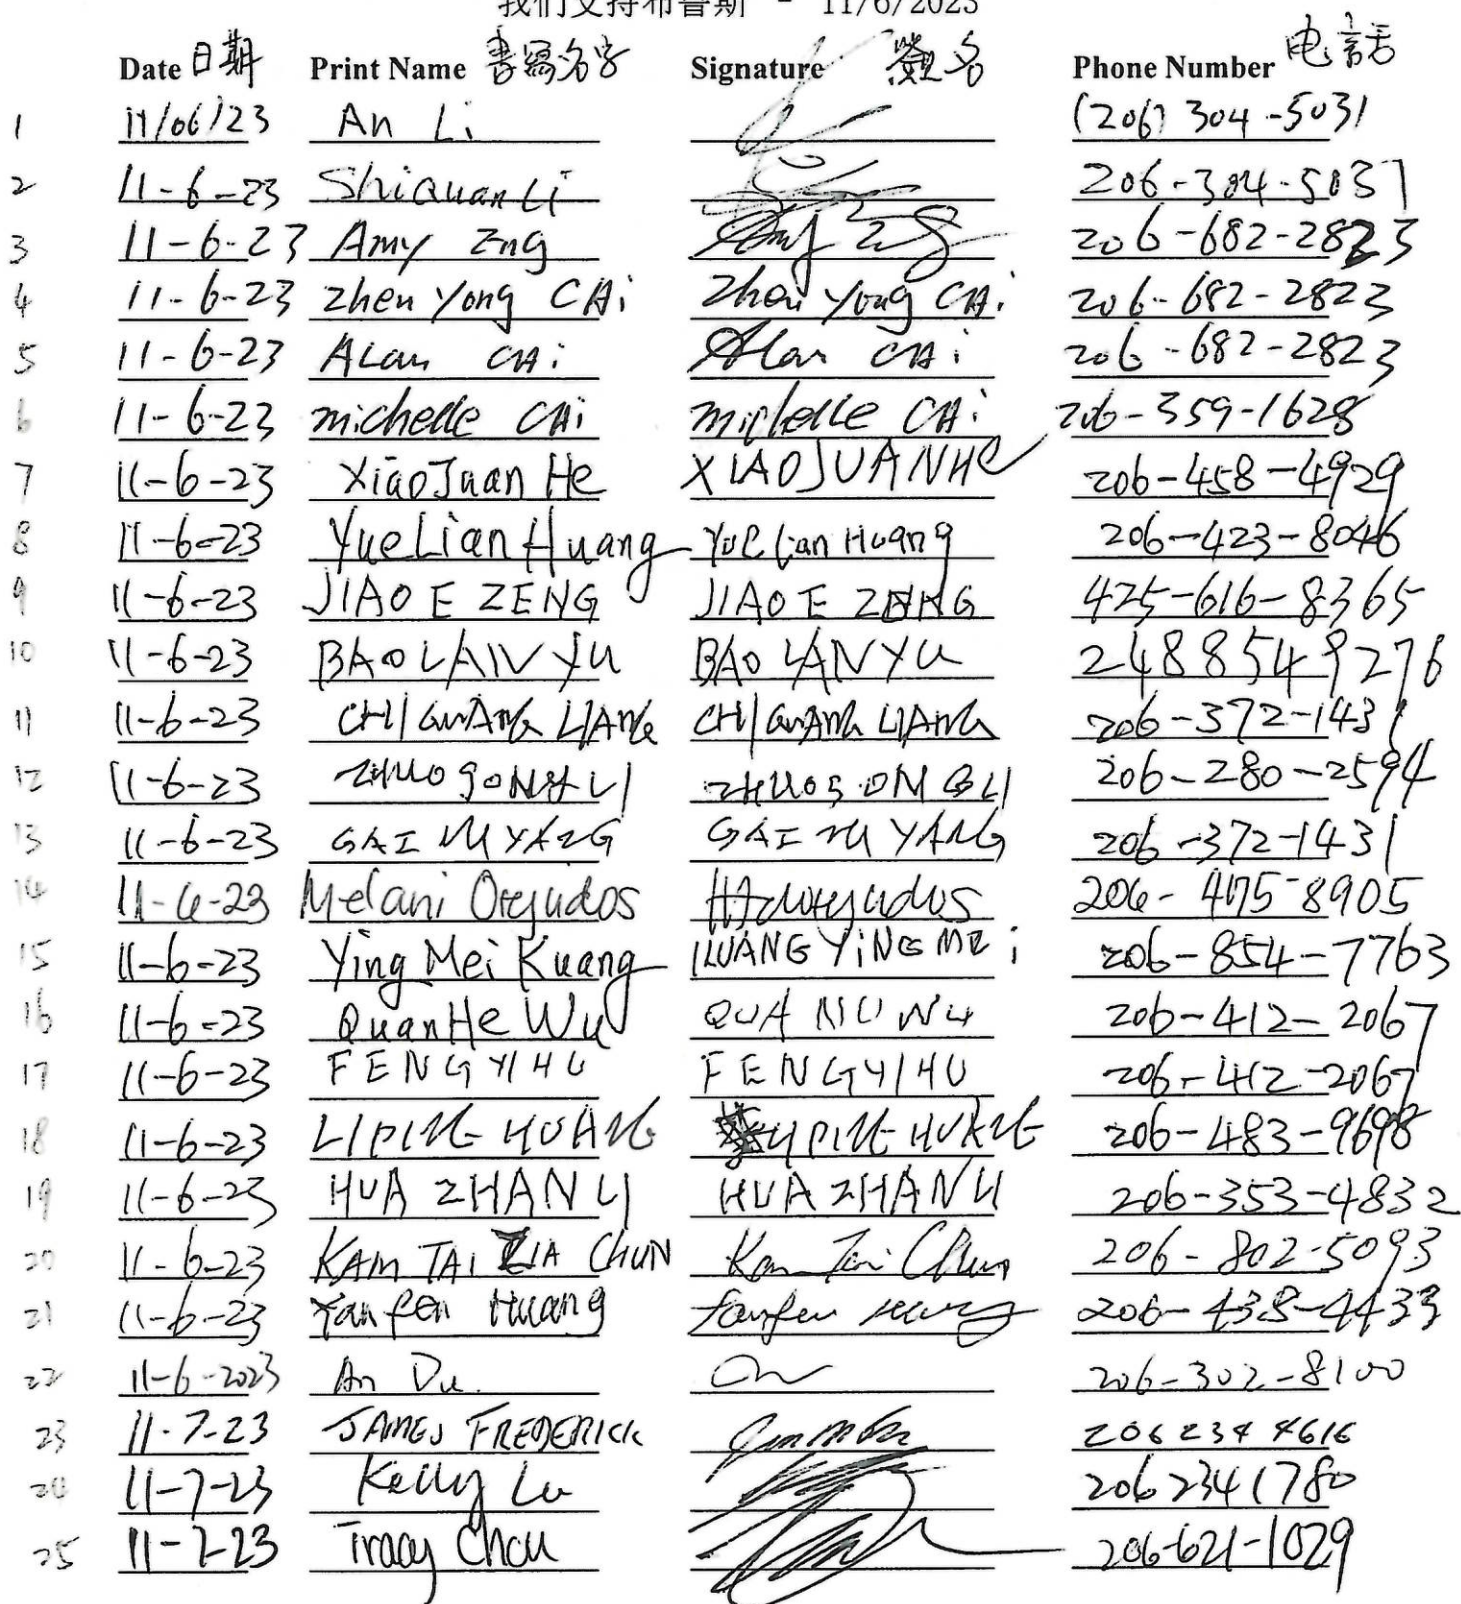 我们支持布鲁斯 - 11/6/2023
Date 日期 Print Name 書寫名字 Signature 簽名 Phone Number 电話
1 11/06/23 An Li (206) 304-5031
2 11-6-23 ShiQuan Li 206-304-5031
3 11-6-23 Amy Eng Amy Eng 206-682-2823
4 11-6-23 Zhen Yong CAi Zhen Yong CAi 206-682-2823
5 11-6-23 ALan CAi Alan CAi 206-682-2823
6 11-6-23 michelle CAi michelle CAi 206-359-1628
7 11-6-23 XiaoJuan He XIAOJUANHe 206-458-4929
8 11-6-23 YueLian Huang Yue Lian Huang 206-423-8046
9 11-6-23 JIAO E ZENG JIAO E ZENG 425-616-8365
10 11-6-23 BAO LAN YU BAO LAN YU 2488549276
11 11-6-23 CHI GUANG LIANG CHI GUANG LIANG 206-372-1431
12 11-6-23 ZHUO SONG LI ZHUO SONG LI 206-280-2594
13 11-6-23 GAI YANG GAI YANG 206-372-1431
14 11-6-23 Melani Oreyudos 206-475-8905
15 11-6-23 Ying Mei Kuang KUANG YiNG MEi 206-854-7763
16 11-6-23 QuanHe Wu QUA WU 206-412-2067
17 11-6-23 FENGYI HU FENGYI HU 206-412-2067
18 11-6-23 LIPING HUANG LIPING HUANG 206-483-9698
19 11-6-23 HUA ZHAN LI HUA ZHAN LI 206-353-4832
20 11-6-23 KAM TAI CHUN Kam Tai Chun 206-802-5093
21 11-6-23 Yanfen Huang Yanfen Huang 206-438-4433
22 11-6-2023 An Du 206-302-8100
23 11-7-23 JAMES FREDERICK 206 234 4616
24 11-7-23 Kelly Lu 206 234 1780
25 11-7-23 Tracy Chou 206-621-1029